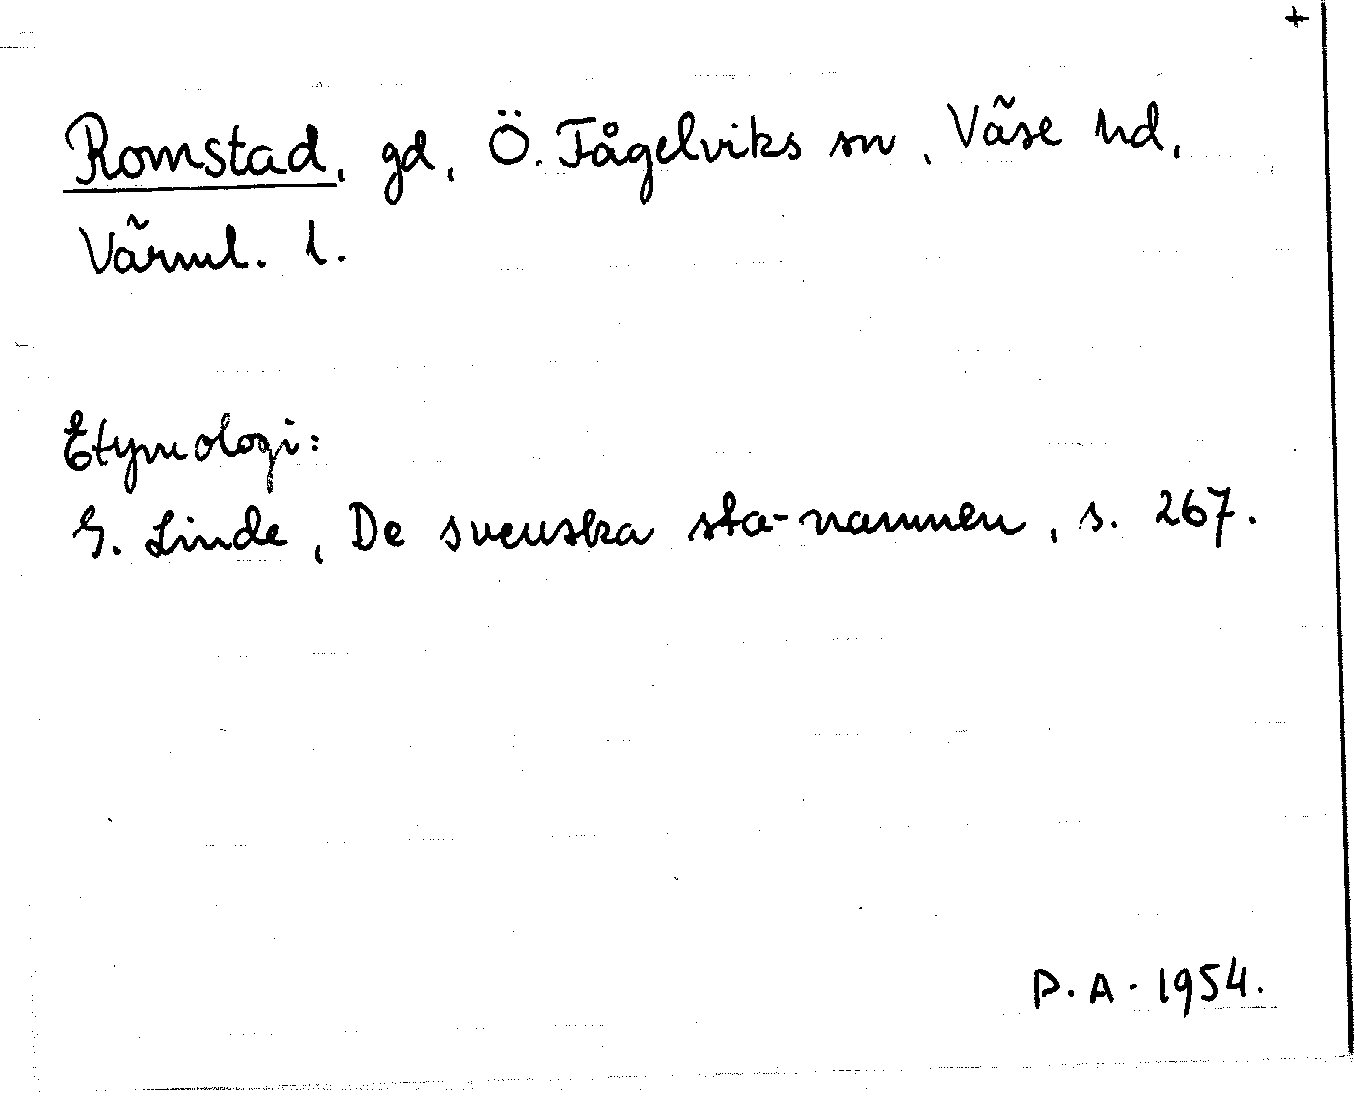 +
Romstad, gd, Ö. Fågelviks sn, Väse hd,
Värml. l.
Etymologi:
G. Linde, De svenska sta-namnen, s. 267.
P. A. 1954.